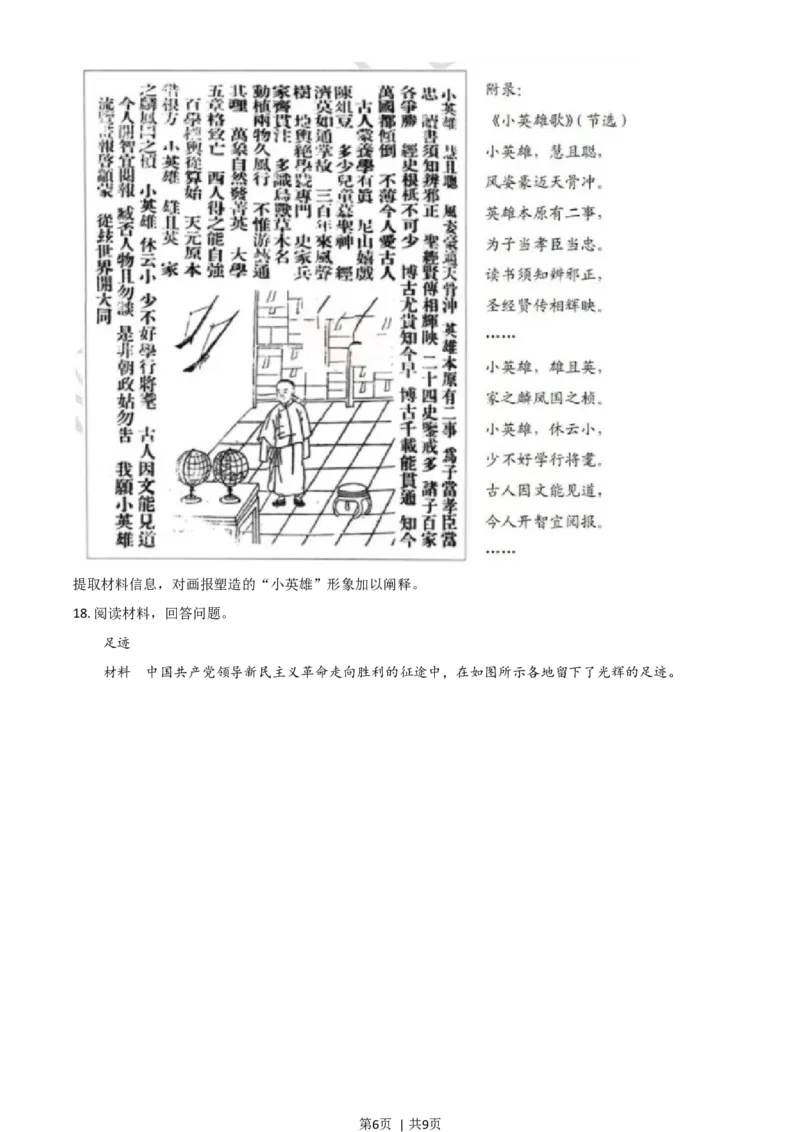 小英雄 慧且聰 風姿豪邁天骨沖 英雄本原有二事 爲子當孝臣當
忠 讀書須知辨邪正 聖經賢傳相輝映 二十四史鑒戒多 諸子百家
各爭勝 經史根柢不可少 博古尤貴知今早 博古千載能貫通 知今
萬國都傾倒 不薄今人愛古人
古人蒙養學有第 尼山嬉戲
陳俎豆 多少兒童慕聖神 經
濟莫如通掌故 三百年來風聲
樹 地輿絕學說專門 史家兵
家齊貫注 多識鳥獸草木名
動植兩物久風行 不惟游藝通
其理 萬象自然發菁英 大學
五章格致亡 西人得之能自強
百學權輿從算始 天元原本
借根方 小英雄 雄且英 家
之麟鳳國之楨 小英雄 休云小 少不好學行將耄 古人因文能見道
今人開智宜閱報 臧否人物且勿談 是非朝政姑勿告 我願小英雄
流覽畫報啓顓蒙 從玆世界開大同
附录：
《小英雄歌》（节选）
小英雄，慧且聪，
风姿豪迈天骨冲。
英雄本原有二事，
为子当孝臣当忠。
读书须知辨邪正，
圣经贤传相辉映。
……
小英雄，雄且英，
家之麟凤国之桢。
小英雄，休云小，
少不好学行将耄。
古人因文能见道，
今人开智宜阅报。
……
提取材料信息，对画报塑造的“小英雄”形象加以阐释。
18. 阅读材料，回答问题。
足迹
材料 中国共产党领导新民主义革命走向胜利的征途中，在如图所示各地留下了光辉的足迹。
第6页 | 共9页